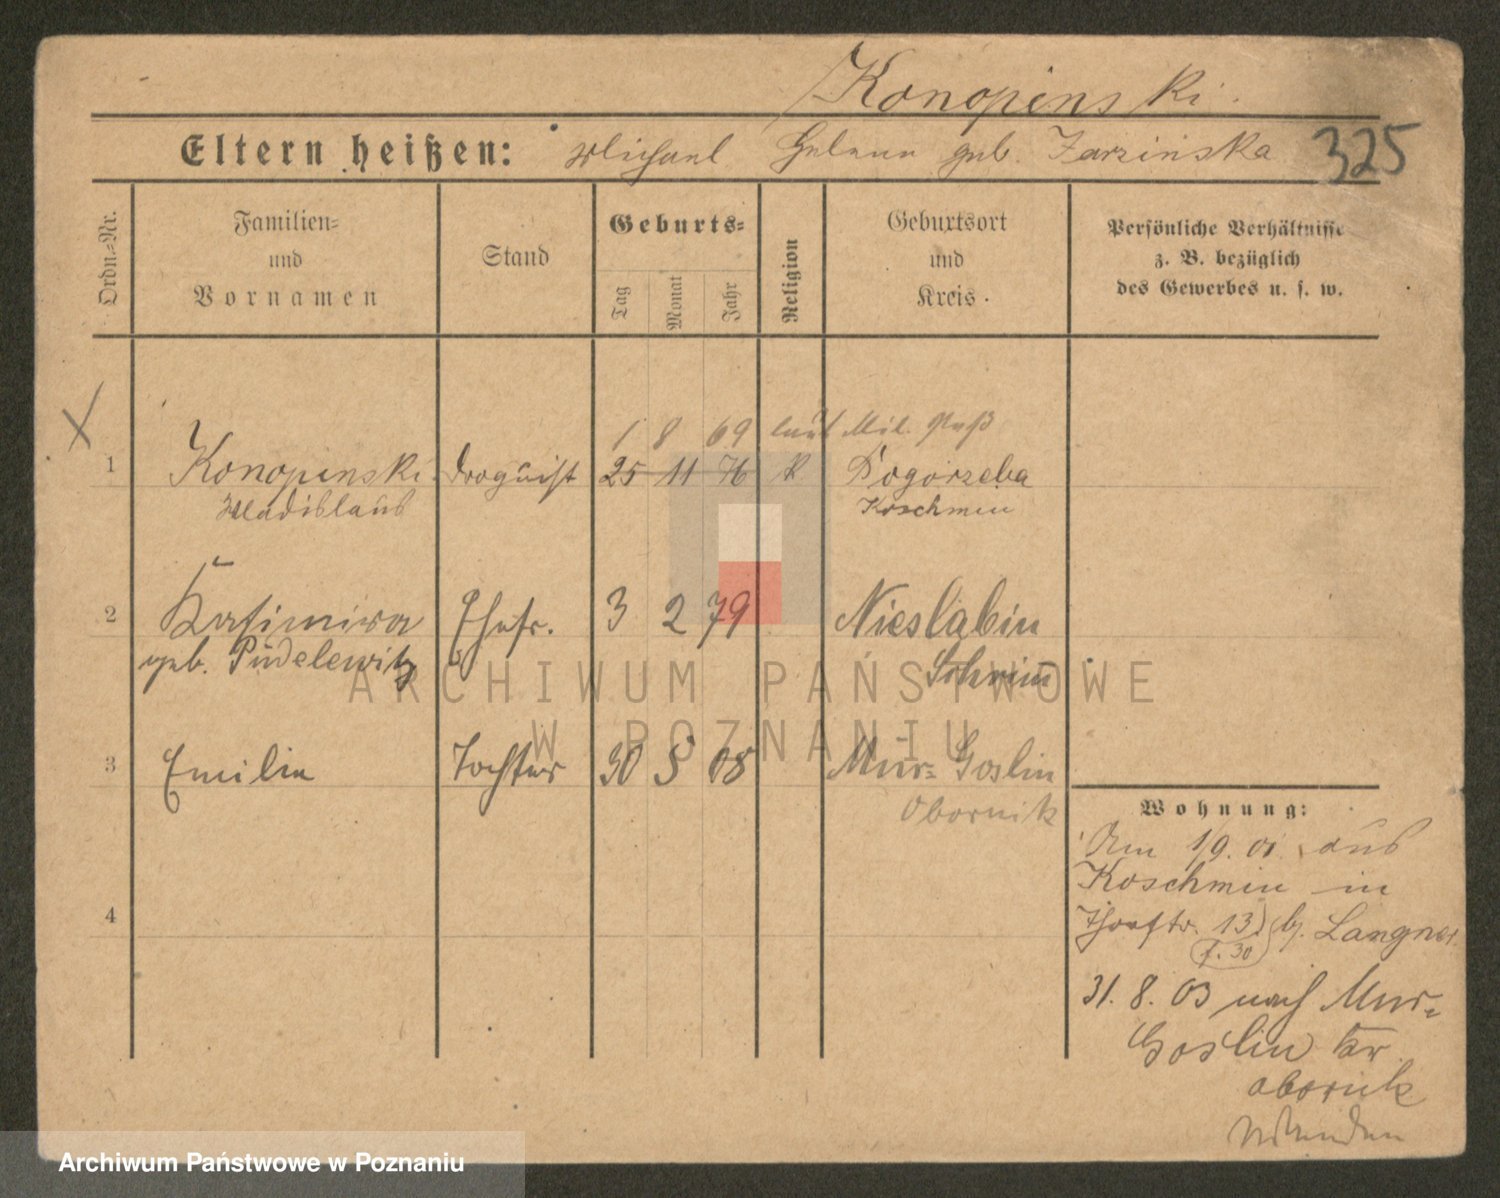 Konopinski
325
Eltern heißen: Michael Helene geb. Zarzinska
Ordn=Nr.
Familien=
und
Vornamen
Stand
Geburts=
Tag
Monat
Jahr
Religion
Geburtsort
und
Kreis.
Persönliche Verhältnisse
z. B. bezüglich
des Gewerbes u. s. w.
1 8 69 laut Mil. Paß
1 Konopinski Droguist 25 11 76 k Pogorzela
Wladislaus Koschmin
2 Kasimira Ehefr. 3 2 79 Nieslabin
geb. Pudelewitz Schrim
3 Emilie Tochter 30 5 08 Mur= Goslin
Obornik
4
Wohnung:
Am 1/9. 01 aus
Koschmin in
Thorstr. 13) b. Langner
F. 30
31. 8. 03 nach Mur=
Goslin Kr.
Obornik
ARCHIWUM PAŃSTWOWE
W POZNANIU
Archiwum Państwowe w Poznaniu